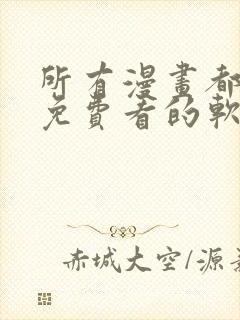 所有漫畫都
免費看的軟
赤城大空/源